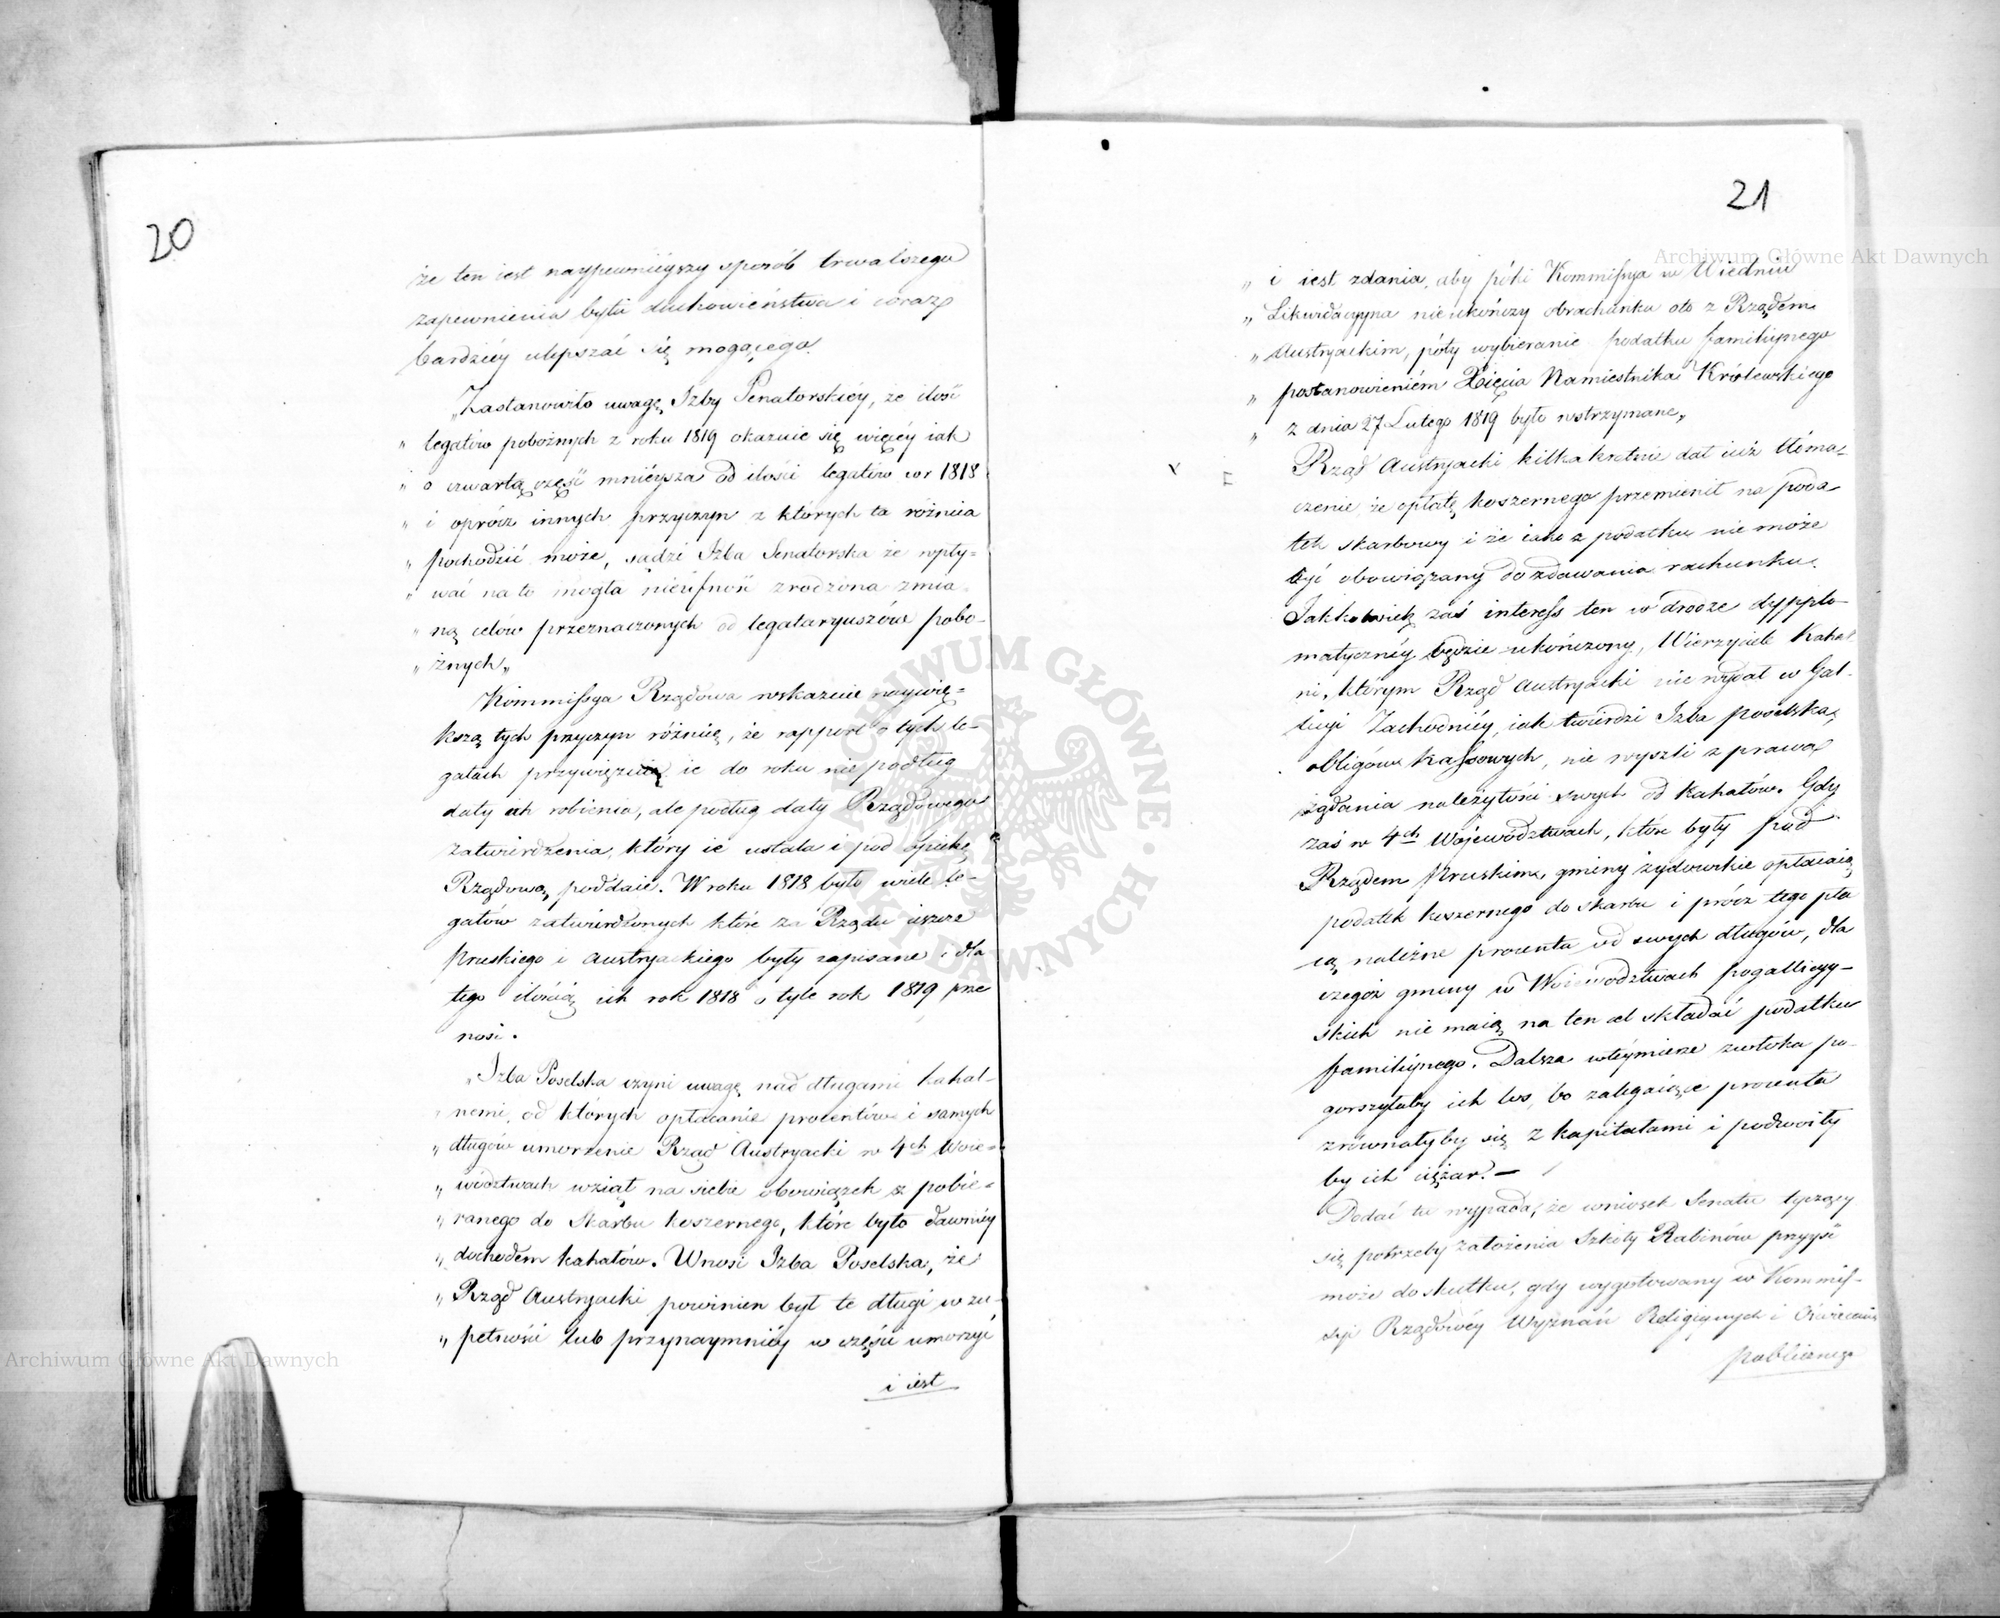 20
że ten iest naypewnieyszy sposób trwalszego
zapewnienia bytu duchowieństwa i coraz
bardziéy ulepszać się mogącego.
„Zastanowiło uwagę Izby Senatorskiéy, że ilość
„ legatów pobożnych z roku 1819 okazuie się więcéy iak
„ o czwartą część mnieysza od ilości legatów w r 1818
„ i oprócz innych przyczyn z których ta różnica
„ pochodzić może, sądzi Izba Senatorska że wpły=
„ wać na to mogła nieufność zrodzona zmia
„ ną celów przeznaczonych od legataryuszów pobo-
„ żnych„
Kommissya Rządowa wskazuie naywię=
kszą tych przyczyn różnicę, że rapport o tych le-
gatach przywięzuie ie do roku nie podług
daty ich robienia, ale podług daty Rządowego
zatwierdzenia, który ie ustala i pod opiekę
Rządową poddaie. W roku 1818 było wiele le-
gatów zatwierdzonych które za Rządu ieszcze
Pruskiego i Austryackiego były zapisane i dla
tego ilością ich rok 1818 o tyle rok 1819 prze
nosi.
„Izba Poselska czyni uwagę nad długami kahal-
„ nemi, od których opłacanie procentów i samych
„ długów umorzenie Rząd Austryacki w 4ch Woie=
„ wództwach wziął na siebie obowiązek z pobie=
„ ranego do Skarbu koszernego, które było dawniéy
„ dochodem kahałów. Wnosi Izba Poselska, że
„ Rząd Austryacki powinien był te długi w zu„
„ pełności lub przynaymniéy w części umorzyć
i iest
21
„ i iest zdania, aby póki Kommissya w Wiedniu
„ Likwidacyyna nie ukończy obrachunku oto z Rządem
„ Austryackim, póty wybieranie podatku familiynego
„ postanowieniem Xięcia Namiestnika Królewskiego
„ z dnia 27 Lutego 1819 było wstrzymane„
Rząd Austryacki kilkakrotnie dał iuż tłóma„
czenie, że opłatę koszernego przemienił na poda
tek skarbowy i że iako z podatku nie może
być obowiązany do zdawania rachunku.
Jakkolwiek zaś interess ten w drodze dypplo-
matycznéy będzie ukończony, Wierzyciele Kahal
ni, którym Rząd Austryacki nie wydał w Gal-
licyi Zachodniéy, iak twierdzi Izba poselska,
obligów kassowych, nie wyszli z prawa
żądania należytości swych od kahałów. Gdy
zaś w 4ch Województwach, które były pod
Rządem Pruskim, gminy żydowskie opłacaią
podatek koszernego do skarbu i prócz tego pła
cą należne procenta od swych długów, dla
czegóż gminy w Województwach pogallicyy-
skich nie maią na ten cel składać podatku
familiynego. Dalsza w téymierze zwłoka po-
gorszyłaby ich los, bo zalegaiące procenta
zrównałyby się z kapitałami i podwoiły
by ich ciężar. —
Dodać tu wypada, że wniosek Senatu tyczący
się potrzeby założenia Szkoły Rabinów przyyść
może do skutku, gdy wygotowany w Kommis-
syi Rządowéy Wyznań Religiynych i Oświecenia
publicznego
Archiwum Główne Akt Dawnych
Archiwum Główne Akt Dawnych
ARCHIWUM GŁÓWNE AKT DAWNYCH